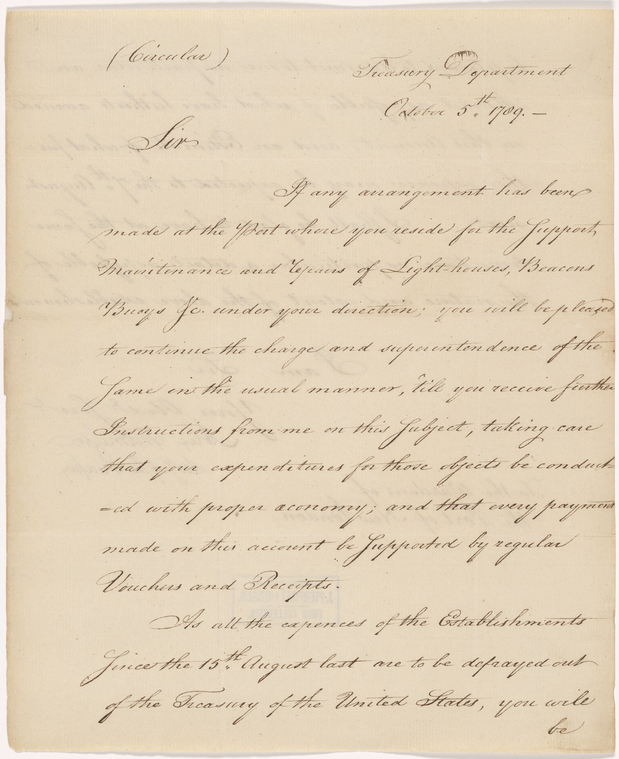 (Circular)
Treasury Department
October 5th. 1789.—
Sir
If any arrangement has been
made at the Port where you reside for the Support,
Maintenance and repairs of Light-houses, Beacons
Buoys &c. under your direction; you will be pleased
to continue the charge and superintendence of the
same in the usual manner, 'till you receive further
Instructions from me on this Subject, taking care
that your expenditures for those objects be conduct=
=ed with proper œconomy; and that every payment
made on this account be Supported by regular
Vouchers and Receipts.
As all the expences of the Establishments
Since the 15th. August last are to be defrayed out
of the Treasury of the United States, you will
be